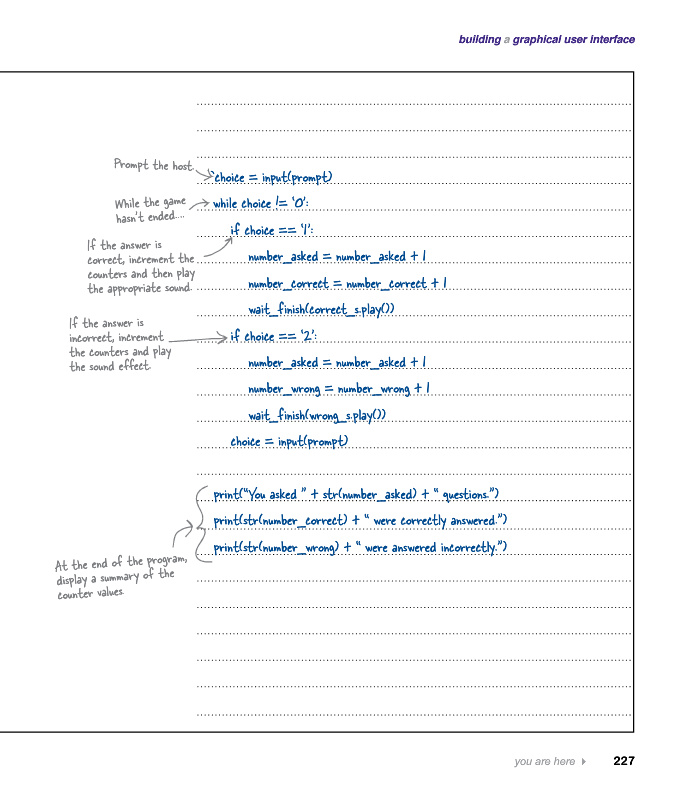 building a graphical user interface
Prompt the host.
choice = input(prompt)
While the game
hasn't ended....
while choice != '0':
if choice == '1':
If the answer is
correct, increment the
counters and then play
the appropriate sound.
number_asked = number_asked + 1
number_correct = number_correct + 1
wait_finish(correct_s.play())
If the answer is
incorrect, increment
the counters and play
the sound effect.
if choice == '2':
number_asked = number_asked + 1
number_wrong = number_wrong + 1
wait_finish(wrong_s.play())
choice = input(prompt)
print("You asked " + str(number_asked) + " questions.")
print(str(number_correct) + " were correctly answered.")
print(str(number_wrong) + " were answered incorrectly.")
At the end of the program,
display a summary of the
counter values.
you are here 227